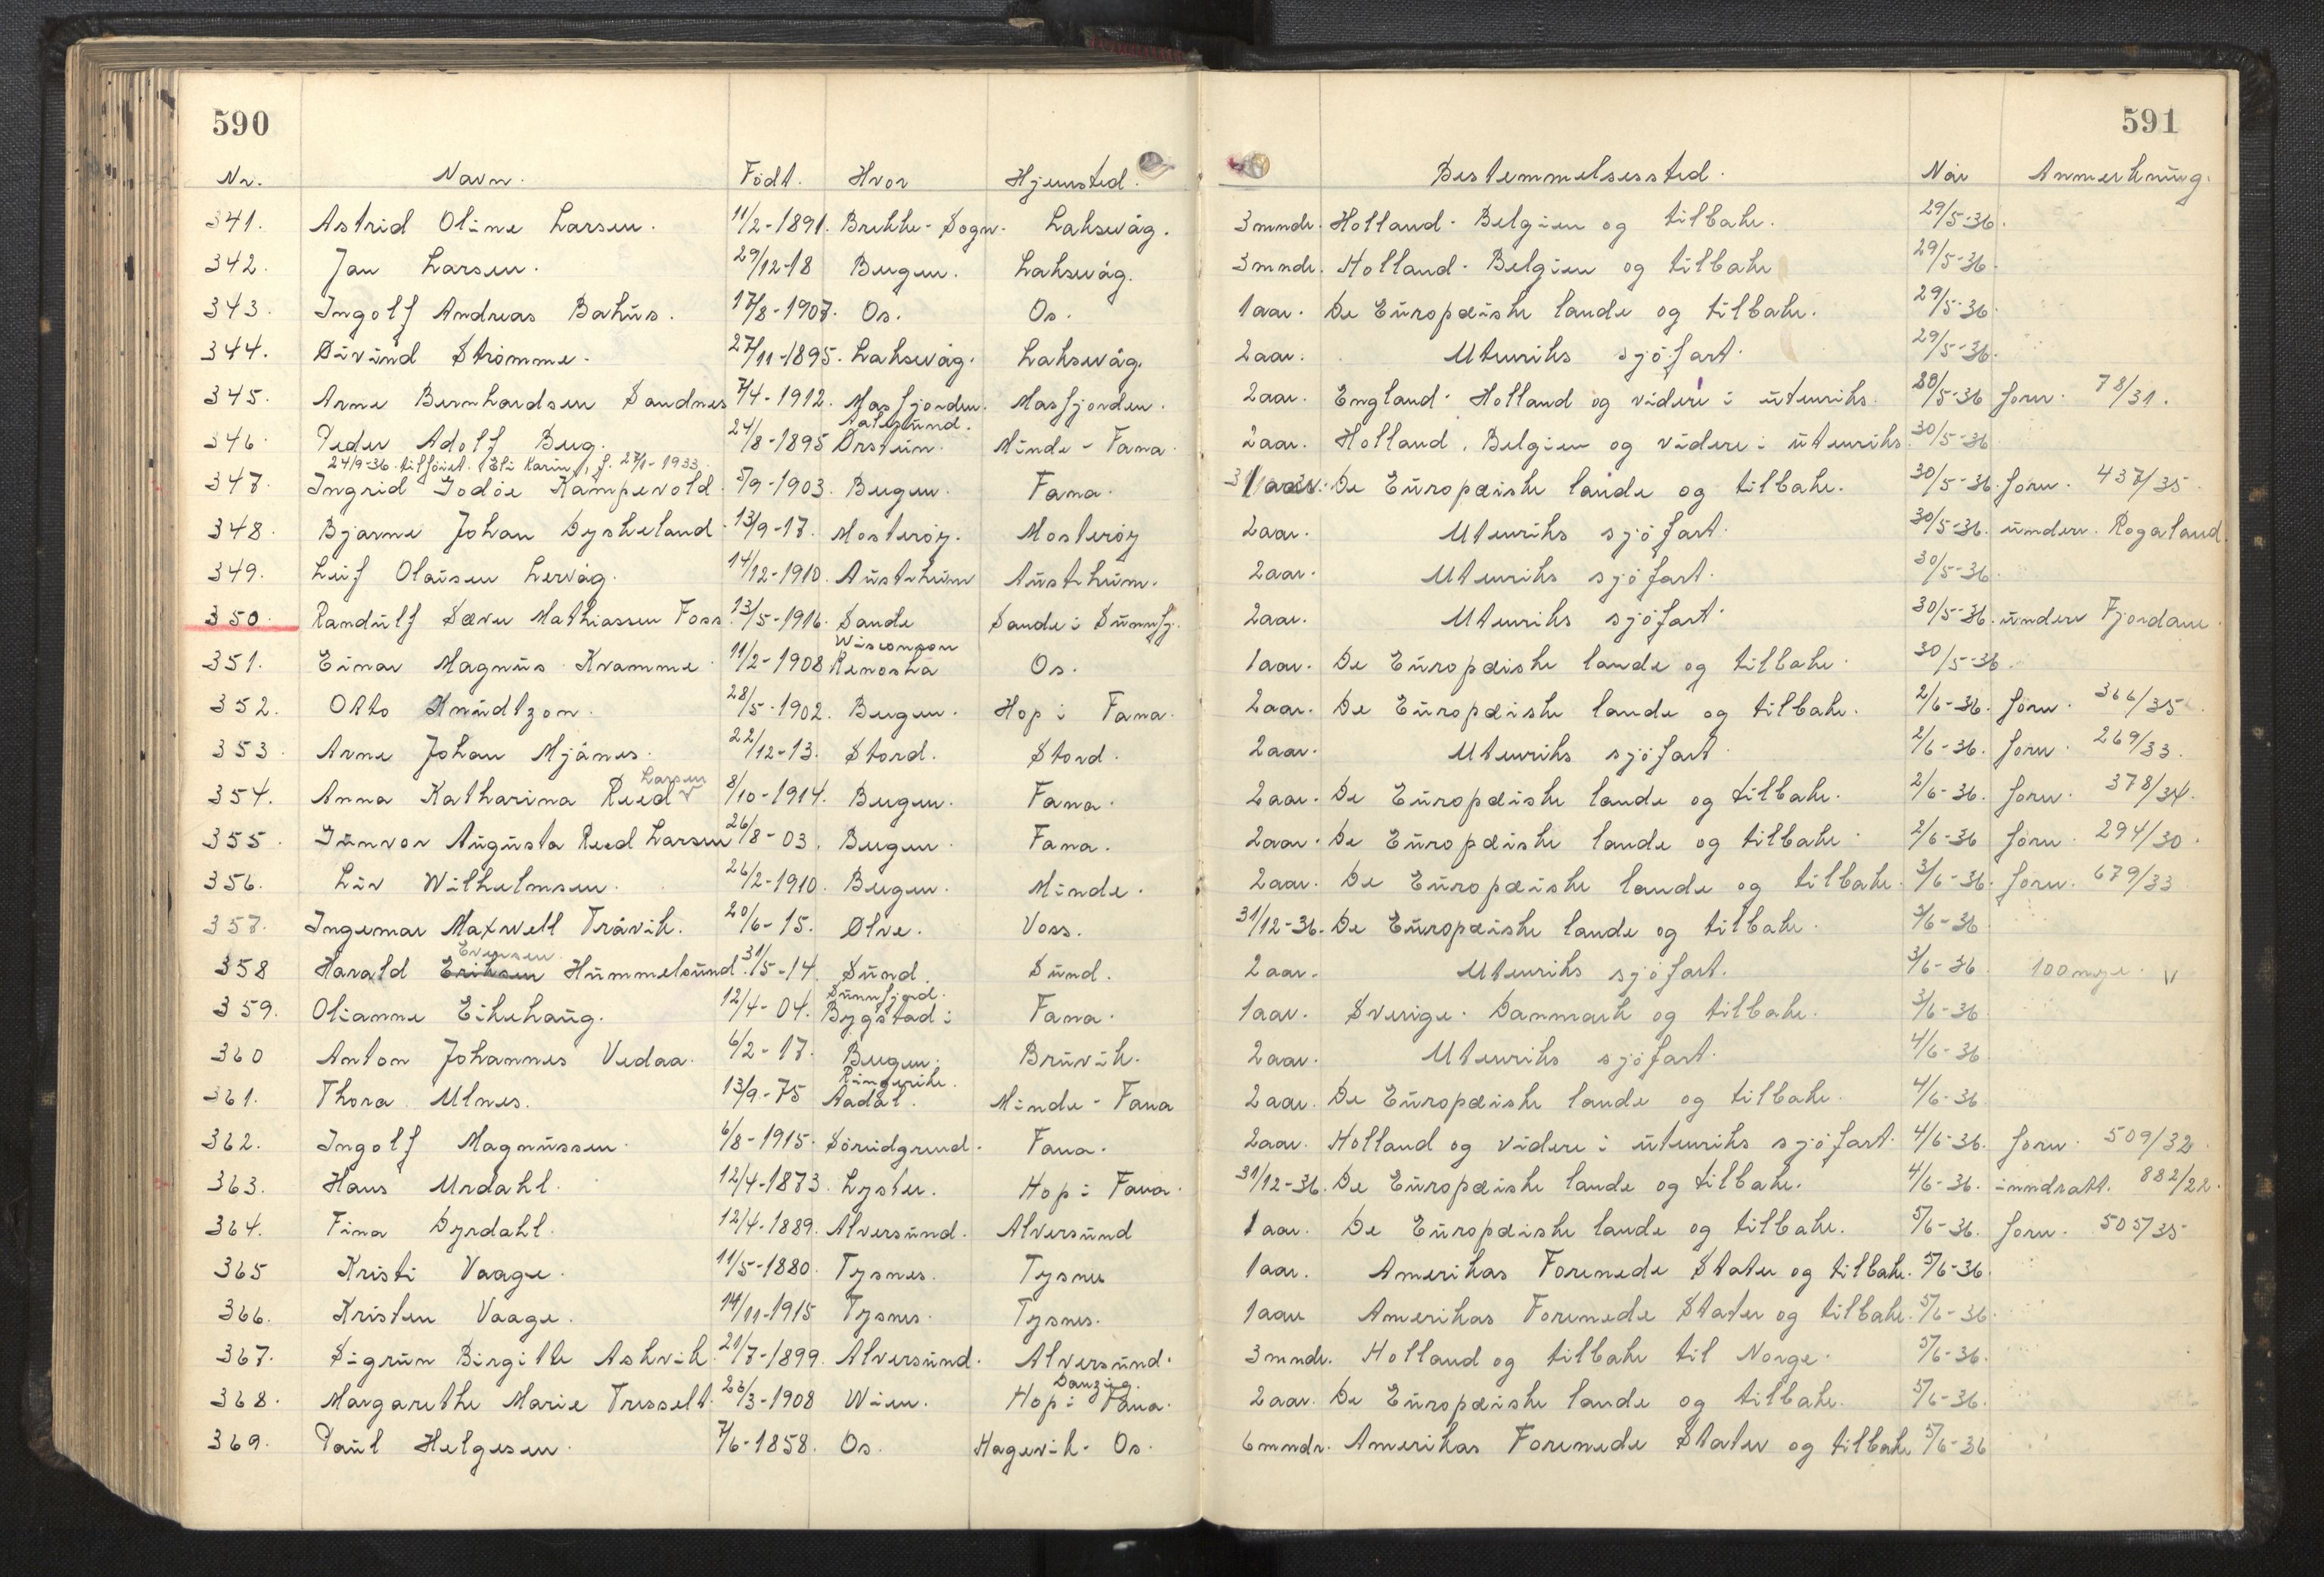 590
591
Nr. Navn. Födt. Hvor Hjemsted. Bestemmelsessted. Når Anmerkning.
341. Astrid Oline Larsen. 11/2-1891. Brekke-Sogn. Laksevåg. 3 mndr. Holland-Belgien og tilbake. 29/5-36.
342. Jan Larsen. 29/12-18 Bergen. Laksevåg. 3 mndr. Holland-Belgien og tilbake 29/5-36.
343. Ingolf Andreas Bahus. 17/8-1907. Os. Os. 1 aar. De Europæiske lande og tilbake. 29/5-36.
344. Eivind Strömme. 27/11-1895. Laksevåg. Laksevåg. 2 aar. Utenriks sjöfart. 29/5-36.
345. Arne Bernhardsen Sandnes 7/4-1912. Masfjorden. Masfjorden. 2 aar. England-Holland og videre i utenriks. 30/5-36 forn. 78/31.
Aalesund.
346. Peder Adolf Berg. 24/8-1895 Örstein. Minde-Fana. 2 aar. Holland, Belgien og videre i utenriks. 30/5-36.
24/9-36. tilföiet. Eli Karin, f. 27/1-1933.
347. Ingrid Godöe Kampevold. 5/9-1903. Bergen. Fana. De Europæiske lande og tilbake. 30/5-36. forn. 437/35.
348. Bjarne Johan Dyskeland. 13/9-17. Mosteröy. Mosteröy 2 aar. Utenriks sjöfart. 30/5-36. underr. Rogaland.
349. Leif Olaisen Lervåg. 14/12-1910. Austrheim Austrheim. 2 aar. Utenriks sjöfart. 30/5-36.
350. Randulf Sæver Mathiassen Foss. 13/5-1916. Sande Sande i Sunnfj. 2 aar. Utenriks sjöfart. 30/5-36. underr Fjordane.
Wisconson
351. Einar Magnus Kvamme. 11/2-1908 Kenosha Os. 1 aar. De Europæiske lande og tilbake. 30/5-36.
352. Otto Knudtzon. 28/5-1902. Bergen. Hop i Fana. 2 aar. De Europæiske lande og tilbake. 2/6-36. forn. 366/35.
353. Arne Johan Mjånes. 22/12-13. Stord. Stord. 2 aar. Utenriks sjöfart. 2/6-36. forn. 269/33.
Larsen
354. Anna Katharina Reed 8/10-1914. Bergen. Fana. 2 aar. De Europæiske lande og tilbake. 2/6-36. forn. 378/34.
355. Gunvor Augusta Reed Larsen 26/8-03. Bergen. Fana. 2 aar. De Europæiske lande og tilbake. 2/6-36 forn. 294/30.
356. Liv Wilhelmsen. 26/2-1910. Bergen. Minde. 2 aar. De Europæiske lande og tilbake. 3/6-36. forn. 679/33
357. Ingemar Maxwell Tråvik. 20/6-15. Ølve. Voss. 31/12-36. De Europæiske lande og tilbake. 3/6-36
Eversen
358 Harald Eriksen Hummelsund. 31/5-14. Sund. Sund. 2 aar. Utenriks sjöfart. 3/6-36 100 mge. v
Sunnfjord.
359. Olianne Eikehaug. 12/4-04. Bygstad i Fana. 1 aar. Sverige-Danmark og tilbake. 3/6-36
360 Anton Johannes Vedaa. 6/2-17. Bergen. Bruvik. 2 aar. Utenriks sjöfart. 4/6-36
Ringerike.
361. Thora Ulnes. 13/9-75 Aadal. Minde-Fana 2 aar. De Europæiske lande og tilbake. 4/6-36
362. Ingolf Magnussen. 6/8-1915. Söridgrend. Fana. 2 aar. Holland og videre i utenriks sjöfart. 4/6-36. forn. 509/32.
363. Hans Urdahl. 12/4-1873. Lyster. Hop i Fana. 31/12-36. De Europæiske lande og tilbake. 4/6-36. inndratt. 882/22.
364. Fina Dyrdahl. 12/4-1889. Alversund. Alversund 1 aar. De Europæiske lande og tilbake. 5/6-36. forn. 505/35
365 Kristi Vaage. 11/5-1880. Tysnes. Tysnes 1 aar. Amerikas Forenede Stater og tilbake. 5/6-36.
366. Kristen Vaage. 14/11-1915 Tysnes. Tysnes. 1 aar Amerikas Forenede Stater og tilbake. 5/6-36.
367. Sigrun Birgitte Askvik. 21/7-1899. Alversund. Alversund. 3 mndr. Holland og tilbake til Norge. 5/6-36.
Danzig.
368. Margarethe Marie Tresselt. 23/3-1908 Wien. Hop i Fana. 2 aar. De Europæiske lande og tilbake. 5/6-36.
369. Paul Helgesen. 7/6-1858. Os. Hagevik-Os. 6 mndr. Amerikas Forenede Stater og tilbake 5/6-36